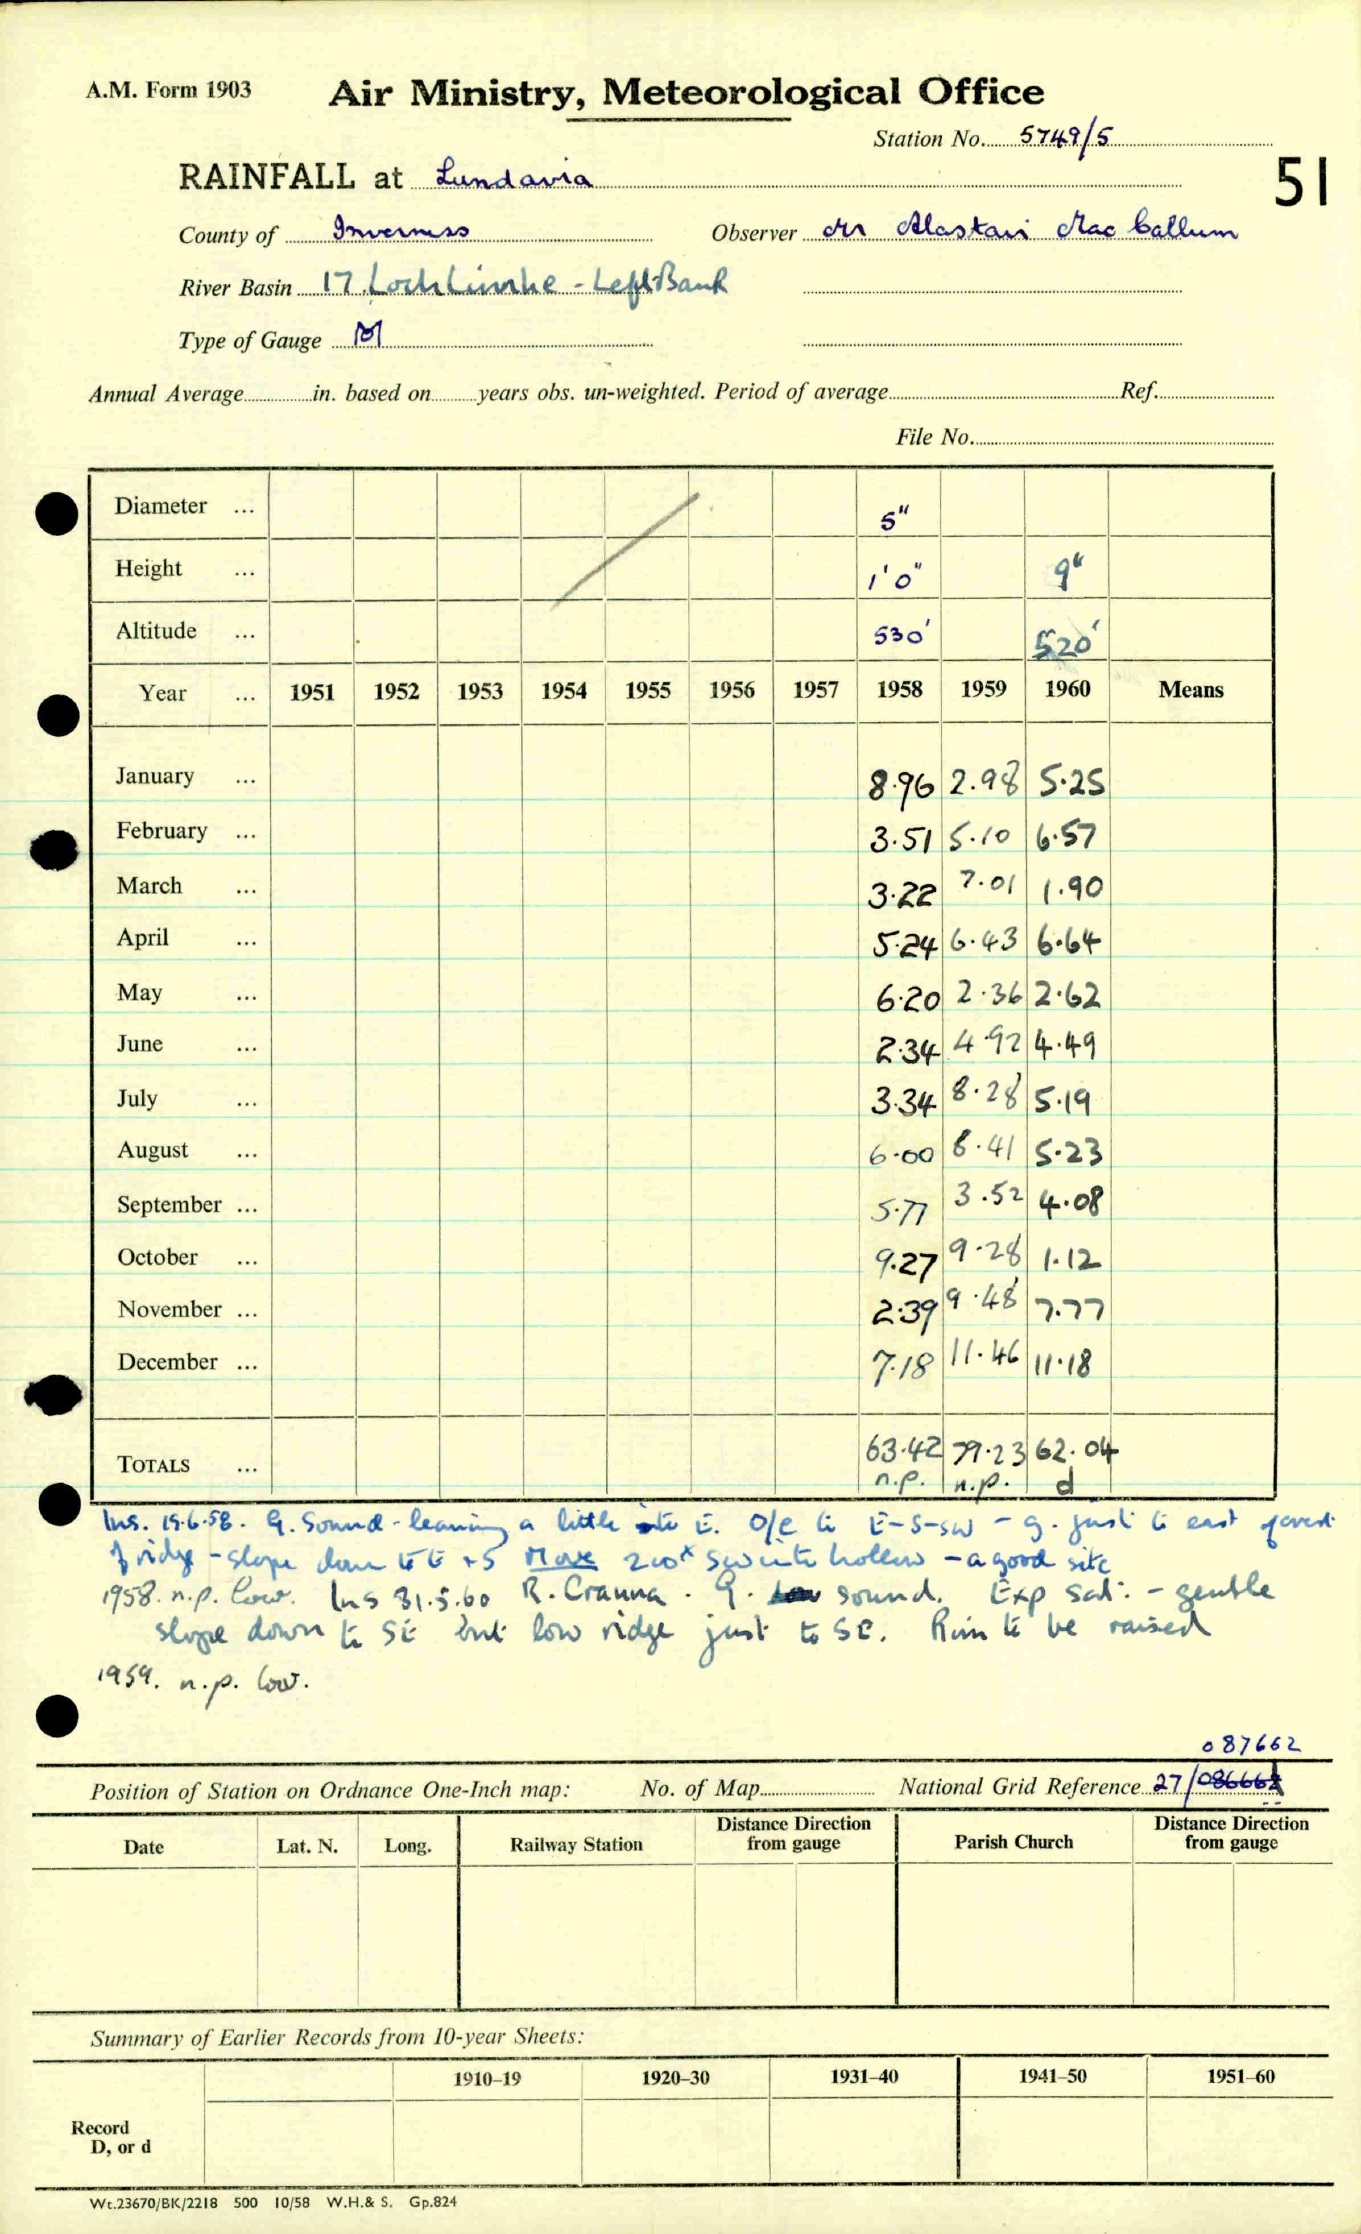 A.M. Form 1903 Air Ministry, Meteorological Office
Station No. 5749/5
RAINFALL at Lundavra 51
County of Inverness Observer Mr Alastair MacCallum
River Basin 17 Loch Linnhe - Left Bank
Type of Gauge M
Annual Average in. based on years obs. un-weighted. Period of average Ref.
File No.
Diameter ... 5"
Height ... 1' 0" 9"
Altitude ... 530' 520'
Year ... 1951 1952 1953 1954 1955 1956 1957 1958 1959 1960 Means
January ... 8.96 2.98 5.25
February ... 3.51 5.10 6.57
March ... 3.22 7.01 1.90
April ... 5.24 6.43 6.64
May ... 6.20 2.36 2.62
June ... 2.34 4.92 4.49
July ... 3.34 8.28 5.19
August ... 6.00 8.41 5.23
September ... 5.77 3.52 4.08
October ... 9.27 9.28 1.12
November ... 2.39 9.48 7.77
December ... 7.18 11.46 11.18
TOTALS ... 63.42 79.23 62.04
n.p. n.p. d
Ins. 19.6.58. G. Sound - leaning a little to E. O/e to E-S-SW - g. just to east of crest
of ridge - slope down to E + S Move 200x SW into hollow - a good site
1958. n.p. low. Ins 31.5.60 R. Cranna. G. sound. Exp sat: - gentle
slope down to SE but low ridge just to SE. Rim to be raised
1959. n.p. low.
087662
Position of Station on Ordnance One-Inch map: No. of Map National Grid Reference 27/086662
Date Lat. N. Long. Railway Station Distance Direction from gauge Parish Church Distance Direction from gauge
Summary of Earlier Records from 10-year Sheets:
1910–19 1920–30 1931–40 1941–50 1951–60
Record
D, or d
Wt.23670/BK/2218 500 10/58 W.H.& S. Gp.824